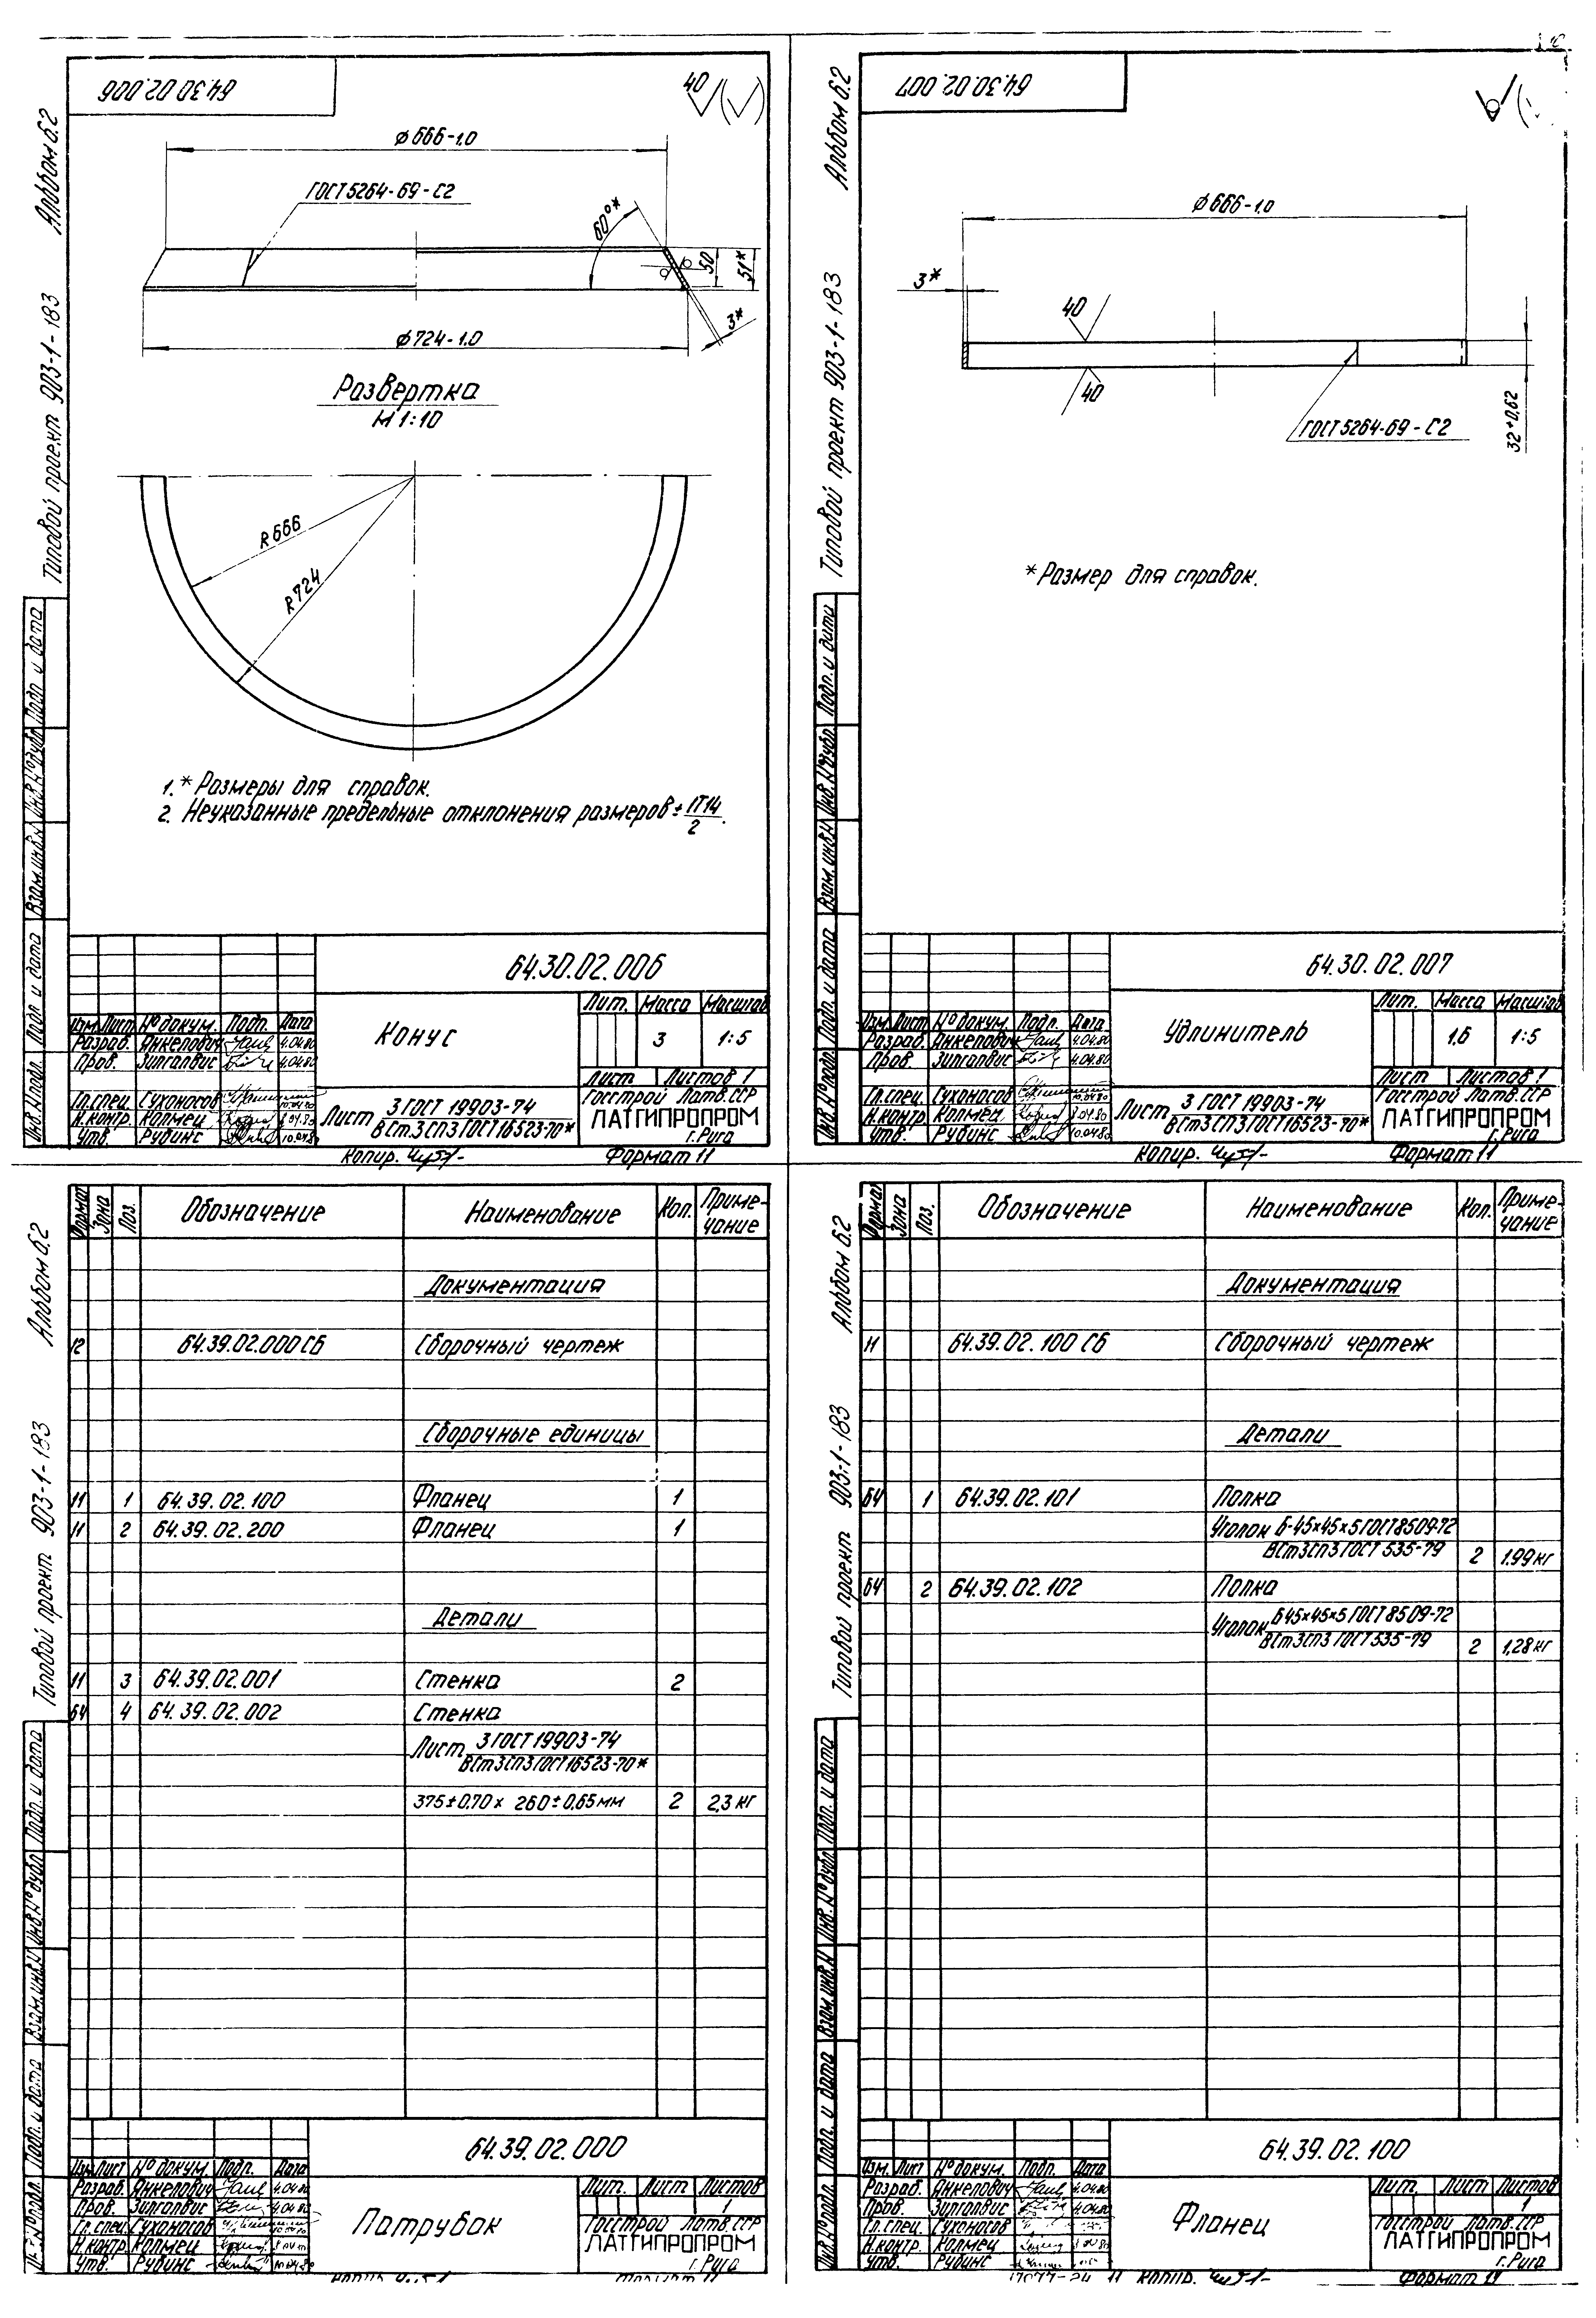 64.30.02.006
40
Альбом 6.2
Типовой проект 903-1-183
⌀666-1.0
ГОСТ 5264-69-С2
60°*
50
51*
3*
⌀724-1.0
Развертка
М 1:10
R 666
R 724
1.* Размеры для справок.
2. Неуказанные предельные отклонения размеров ± IT14/2.
Подп. и дата
Инв.№ дубл.
Взам.инв.№
Подп. и дата
Инв.№ подл.
64.30.02.006
Изм. Лист № докум. Подп. Дата
Разраб. Янкелович 4.04.80
Пров. Зилгалвис 4.04.80
Гл.спец. Сухоносов 10.04.80
Н.контр. Колмец 8.04.80
Утв. Рубинс 10.04.80
Конус
Лит. Масса Масштаб
3 1:5
Лист Листов 1
Лист 3 ГОСТ 19903-74
ВСт3СП3 ГОСТ 16523-70*
Госстрой Латв.ССР
ЛАТГИПРОПРОМ
г.Рига
Копир.
Формат 11
64.30.02.007
Альбом 6.2
Типовой проект 903-1-183
⌀666-1.0
3*
40
40
32+0,62
ГОСТ 5264-69-С2
*Размер для справок.
Подп. и дата
Инв.№ дубл.
Взам.инв.№
Подп. и дата
Инв.№ подл.
64.30.02.007
Изм. Лист № докум. Подп. Дата
Разраб. Янкелович 4.04.80
Пров. Зилгалвис 4.04.80
Гл.спец. Сухоносов 10.04.80
Н.контр. Колмец 8.04.80
Утв. Рубинс 10.04.80
Удлинитель
Лит. Масса Масштаб
1,6 1:5
Лист Листов 1
Лист 3 ГОСТ 19903-74
ВСт3СП3 ГОСТ 16523-70*
Госстрой Латв.ССР
ЛАТГИПРОПРОМ
г.Рига
Копир.
Формат 11
Альбом 6.2
Типовой проект 903-1-183
Формат Зона Поз. Обозначение Наименование Кол. Примечание
Документация
12 64.39.02.000 СБ Сборочный чертеж
Сборочные единицы
11 1 64.39.02.100 Фланец 1
11 2 64.39.02.200 Фланец 1
Детали
11 3 64.39.02.001 Стенка 2
БЧ 4 64.39.02.002 Стенка
Лист 3 ГОСТ 19903-74
ВСт3СП3 ГОСТ 16523-70*
375±0,70 х 260±0,65 мм 2 2,3 кг
Подп. и дата
Инв.№ дубл.
Взам.инв.№
Подп. и дата
64.39.02.000
Изм. Лист № докум. Подп. Дата
Разраб. Янкелович 4.04.80
Пров. Зилгалвис 4.04.80
Гл.спец. Сухоносов
Н.контр. Колмец
Утв. Рубинс 10.04.80
Патрубок
Лит. Лист Листов
1
Госстрой Латв.ССР
ЛАТГИПРОПРОМ
г.Рига
Альбом 6.2
Типовой проект 903-1-183
Формат Зона Поз. Обозначение Наименование Кол. Примечание
Документация
11 64.39.02.100 СБ Сборочный чертеж
Детали
БЧ 1 64.39.02.101 Полка
Уголок Б-45х45х5 ГОСТ 8509-72
ВСт3СП3 ГОСТ 535-79 2 1.99 кг
БЧ 2 64.39.02.102 Полка
Уголок Б 45х45х5 ГОСТ 8509-72
ВСт3СП3 ГОСТ 535-79 2 1,28 кг
Подп. и дата
Инв.№ дубл.
Взам.инв.№
Подп. и дата
Инв.№ подл.
64.39.02.100
Изм. Лист № докум. Подп. Дата
Разраб. Янкелович 4.04.80
Пров. Зилгалвис 4.04.80
Гл.спец. Сухоносов
Н.контр. Колмец
Утв. Рубинс
Фланец
Лит. Лист Листов
1
Госстрой Латв.ССР
ЛАТГИПРОПРОМ
г.Рига
11 Копир.
Формат 11